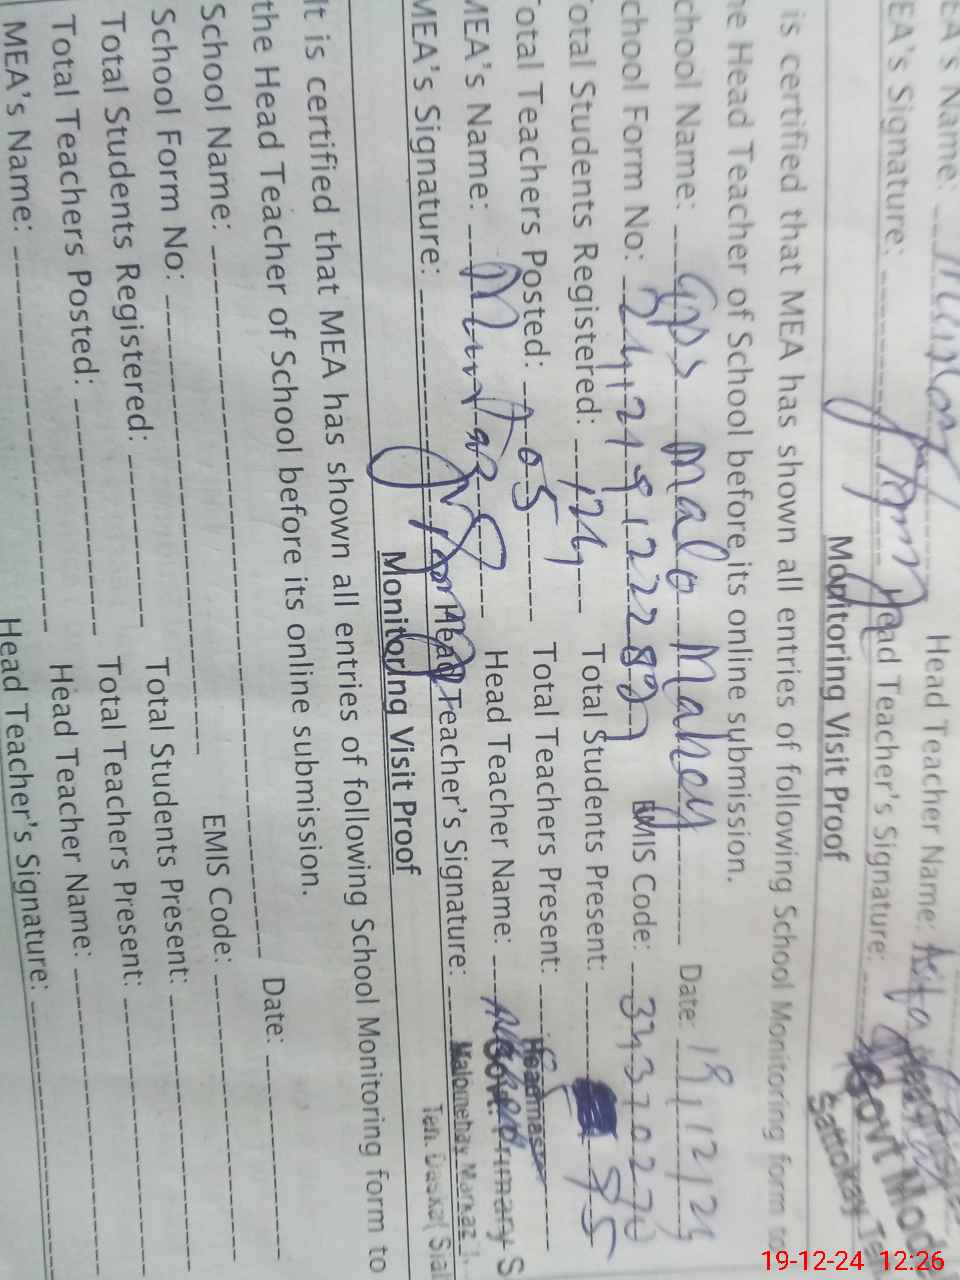 EA's Name: Head Teacher Name:
EA's Signature: Head Teacher's Signature:
Govt Mod
Sattokay Teh
Monitoring Visit Proof
is certified that MEA has shown all entries of following School Monitoring form to
he Head Teacher of School before its online submission.
chool Name: GPS Malo Mahey Date: 19/12/24
chool Form No: EMIS Code: 34370270
otal Students Registered: 124 Total Students Present: 95
otal Teachers Posted: 05 Total Teachers Present:
MEA's Name: Head Teacher Name:
MEA's Signature: Head Teacher's Signature:
Headmas
Govt. Primary S
Malomehay Markaz
Teh. Daska( Sial
Monitoring Visit Proof
It is certified that MEA has shown all entries of following School Monitoring form to
the Head Teacher of School before its online submission.
School Name: Date:
School Form No: EMIS Code:
Total Students Registered: Total Students Present:
Total Teachers Posted: Total Teachers Present:
MEA's Name: Head Teacher Name:
Head Teacher's Signature:
19-12-24 12:26